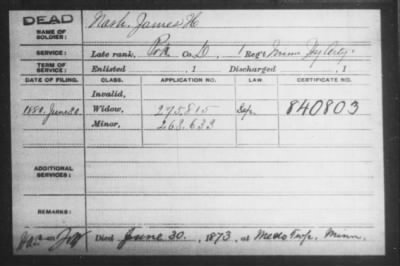 DEAD
NAME OF SOLDIER: Nash, James H
SERVICE: Late rank, Pvt Co. D, 1 Reg't Minn Hy Arty;
TERM OF SERVICE: Enlisted , 1 Discharged , 1
DATE OF FILING. CLASS. APPLICATION NO. LAW. CERTIFICATE NO.
Invalid,
1880, June 30 Widow, 275815 840803
Minor, 268.633
ADDITIONAL SERVICES:
REMARKS:
Died June 30, 1873, at Medo Twp. Minn.